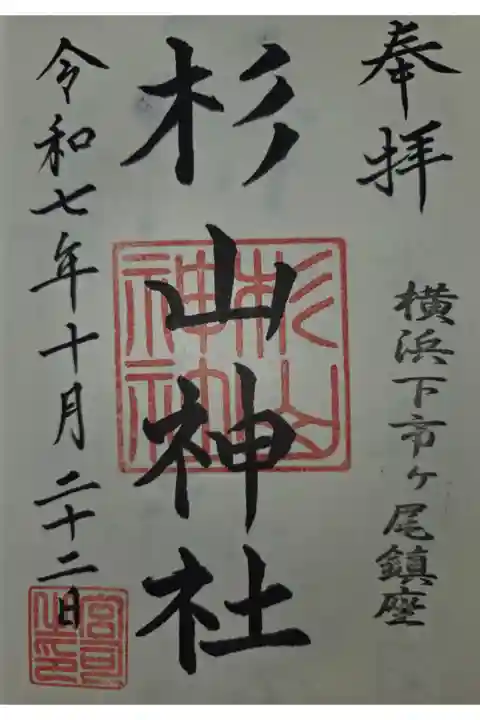 奉拝
横浜下市ヶ尾鎮座
杉山神社
杉山神社
令和七年十月二十二日
宮司之印